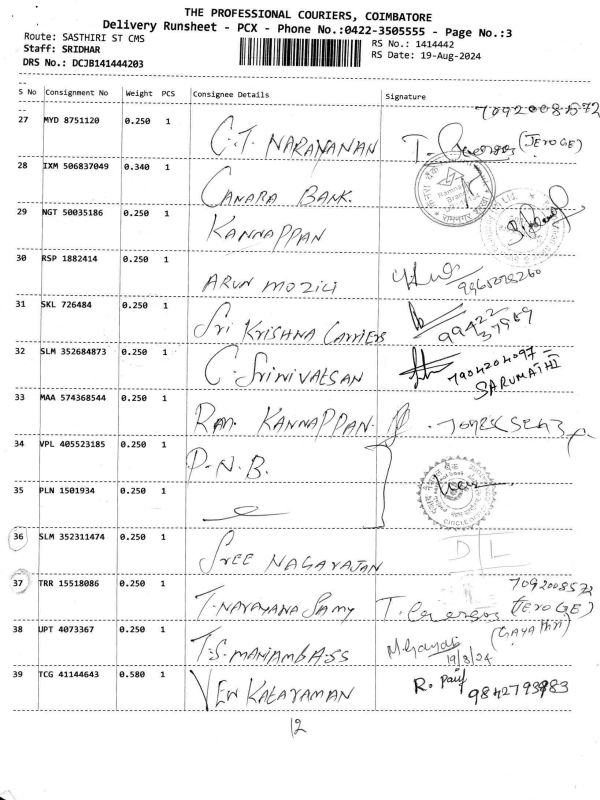 THE PROFESSIONAL COURIERS, COIMBATORE
Delivery Runsheet - PCX - Phone No.:0422-3505555 - Page No.:3
Route: SASTHIRI ST CMS
RS No.: 1414442
Staff: SRIDHAR
RS Date: 19-Aug-2024
DRS No.: DCJB141444203
S No Consignment No Weight PCS Consignee Details Signature
27 MYD 8751120 0.250 1 C.T. NARAYANAN (JEROGE)
28 IXM 506837049 0.340 1 CANARA BANK.
29 NGT 50035186 0.250 1 KANNAPPAN
30 RSP 1882414 0.250 1 ARUN MOZILI
31 SKL 726484 0.250 1 Sri KRISHNA CARRIERS 99422 37989
32 SLM 352684873 0.250 1 C. SriNiVatSAN 7904204097 - SARUMATHI
33 MAA 574368544 0.250 1 RM. KANNAPPAN.
34 VPL 405523185 0.250 1 P.N.B.
35 PLN 1501934 0.250 1
36 SLM 352311474 0.250 1 SREE NAGARAJAN D L
7092008572
37 TRR 15518086 0.250 1 T. NARAYANA SAMY (JEROGE)
38 UPT 4073367 0.250 1 (GAYATHRI)
19/8/24
39 TCG 41144643 0.580 1 VENKATARAMAN R. 
12